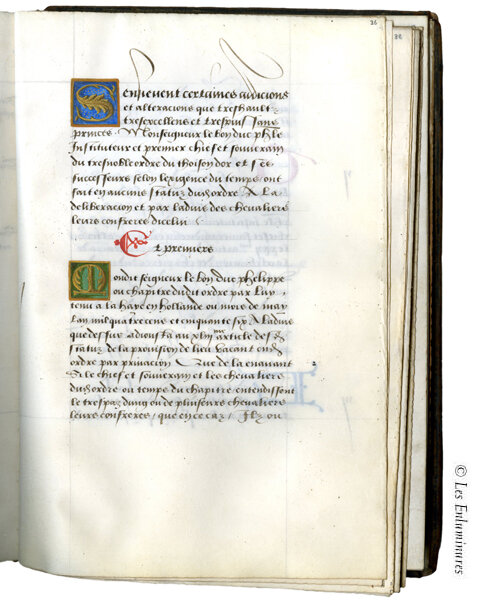 36
38
Sensievent certaines addicions
et alteracions que treshault
tresexcellens et trespuissans
princes Monseigneur le bon duc ph̅le
Instituteur et premier chief et souverain
du tresnoble ordre du thoison dor et ses
successeurs selon lexigence du temps ont
fait en aucuns statuz dudit ordre A la
deliberacion et par ladvis des chevaliers
leurs confreres dicelui
Et premiers
Mondit seigneur le bon duc phelippe
ou chapitre dudit ordre par luy
tenu a la haye en hollande ou mois de may
lan mil quatre cens et cinquante six A ladvis
que dessus adiousta au article des
statuz de la provision de lieu vacant oudit
ordre par privacion Que de la en avant
Si le chief et souverain et les chevaliers
dudit ordre ou temps du chapitre entendissent
le trespaz dung ou de plusieurs chevaliers
leurs confreres / que en ce caz / Ilz ou
© Les Enluminures